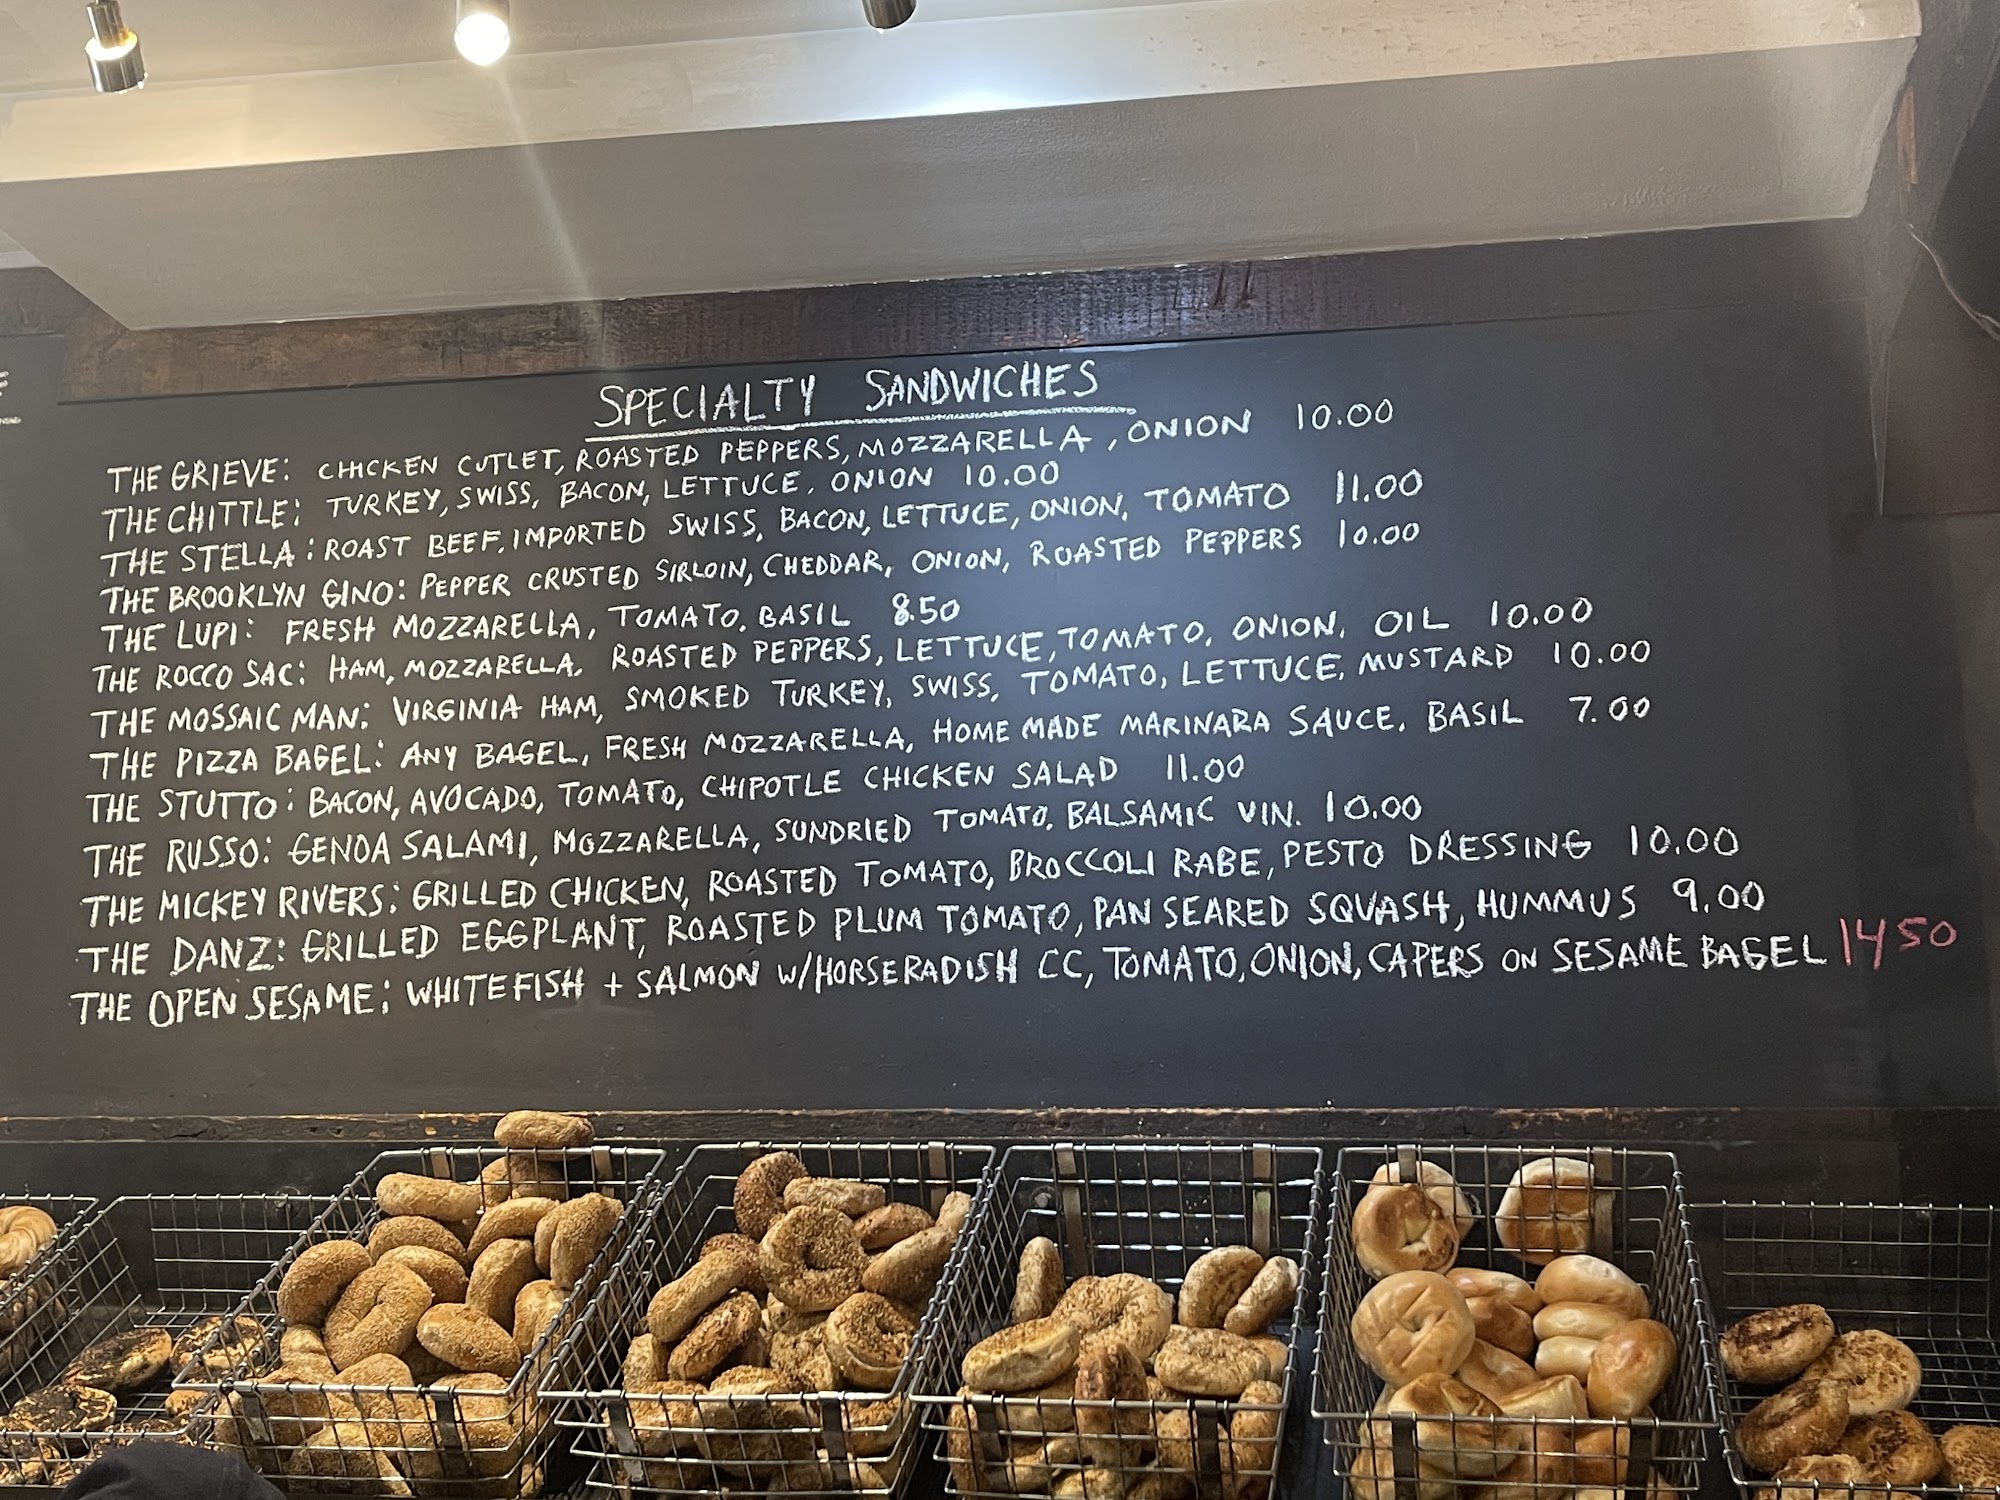 SPECIALTY SANDWICHES
THE GRIEVE: CHICKEN CUTLET, ROASTED PEPPERS, MOZZARELLA, ONION 10.00
THE CHITTLE: TURKEY, SWISS, BACON, LETTUCE, ONION 10.00
THE STELLA: ROAST BEEF, IMPORTED SWISS, BACON, LETTUCE, ONION, TOMATO 11.00
THE BROOKLYN GINO: PEPPER CRUSTED SIRLOIN, CHEDDAR, ONION, ROASTED PEPPERS 10.00
THE LUPI: FRESH MOZZARELLA, TOMATO, BASIL 8.50
THE ROCCO SAC: HAM, MOZZARELLA, ROASTED PEPPERS, LETTUCE, TOMATO, ONION, OIL 10.00
THE MOSSAIC MAN: VIRGINIA HAM, SMOKED TURKEY, SWISS, TOMATO, LETTUCE, MUSTARD 10.00
THE PIZZA BAGEL: ANY BAGEL, FRESH MOZZARELLA, HOME MADE MARINARA SAUCE, BASIL 7.00
THE STUTTO: BACON, AVOCADO, TOMATO, CHIPOTLE CHICKEN SALAD 11.00
THE RUSSO: GENOA SALAMI, MOZZARELLA, SUNDRIED TOMATO, BALSAMIC VIN. 10.00
THE MICKEY RIVERS: GRILLED CHICKEN, ROASTED TOMATO, BROCCOLI RABE, PESTO DRESSING 10.00
THE DANZ: GRILLED EGGPLANT, ROASTED PLUM TOMATO, PAN SEARED SQUASH, HUMMUS 9.00
THE OPEN SESAME: WHITEFISH + SALMON W/HORSERADISH CC, TOMATO, ONION, CAPERS ON SESAME BAGEL 1450